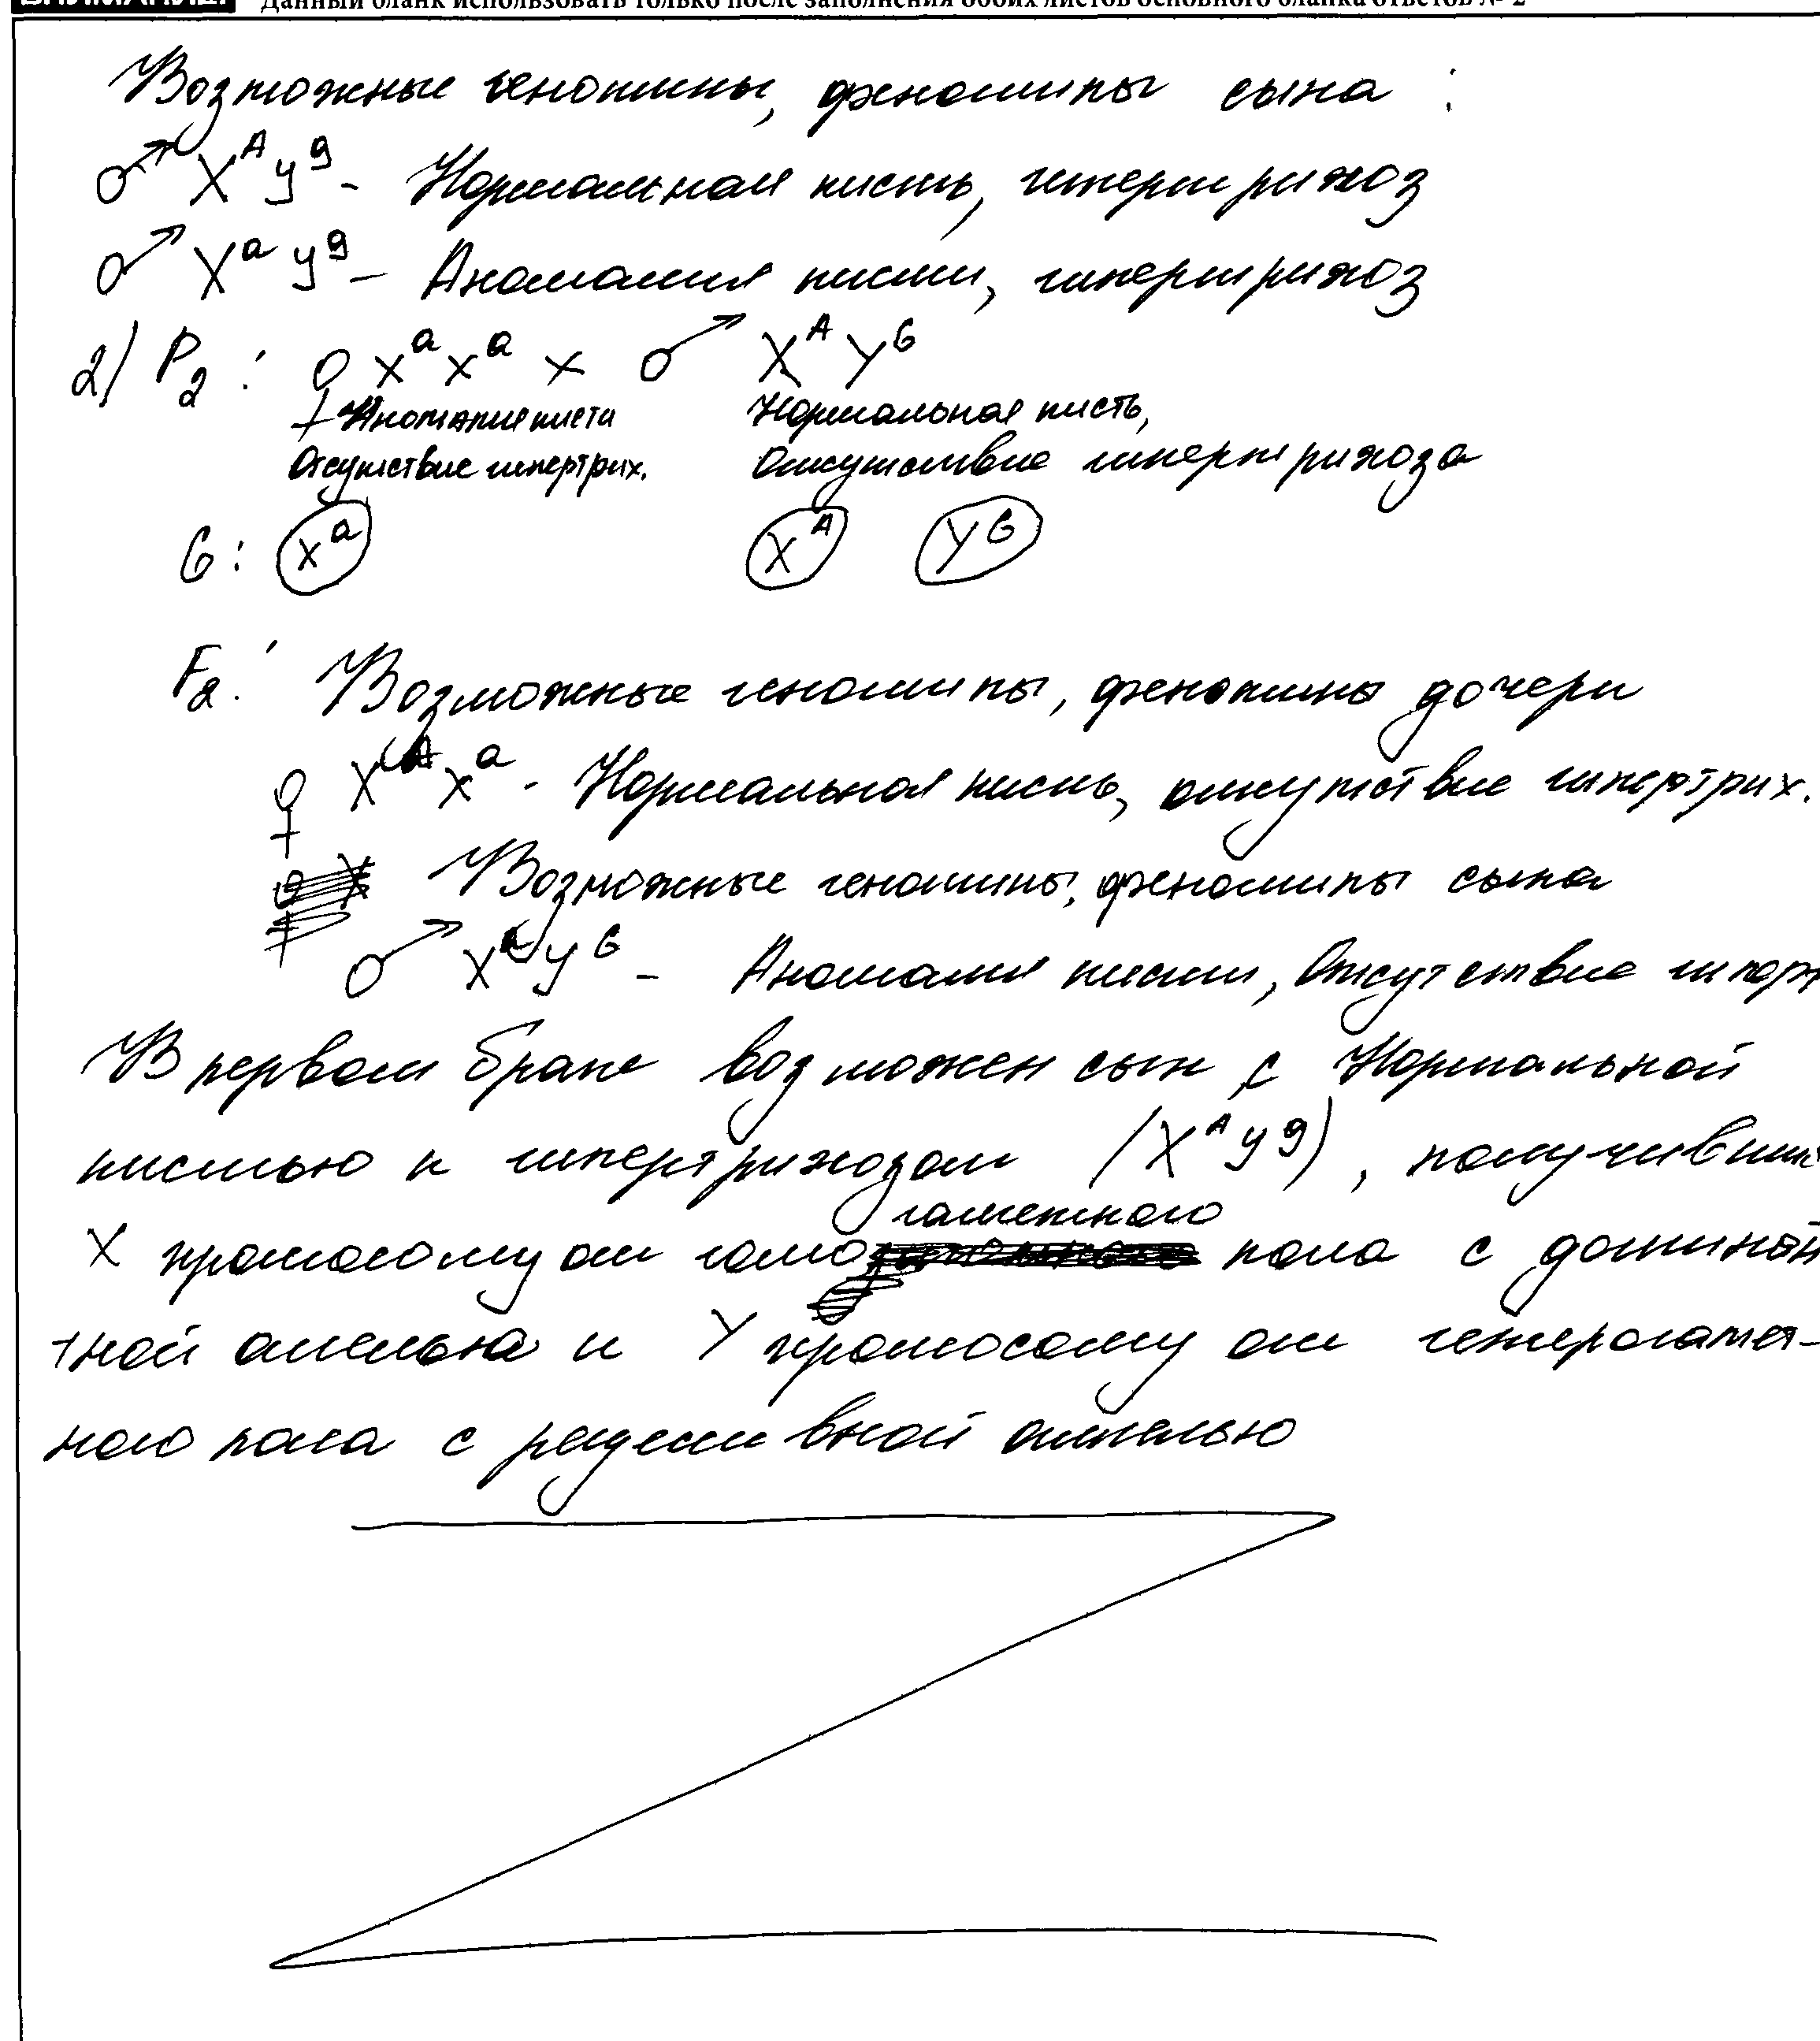 Данный бланк использовать только после заполнения обоих листов основного бланка ответов № 2
Возможные генотипы, фенотипы сына :
♂ X^A y^g - Нормальная кисть, гипертрихоз
♂ X^a y^g - Аномалия кисти, гипертрихоз
2) P₂ : ♀ X^a X^a x ♂ X^A Y^G
Аномалия кисти Нормальная кисть,
Отсутствие гипертрих. Отсутствие гипертрихоза
G : X^a X^A Y^G
F₂: Возможные генотипы, фенотипы дочери
♀ X^A X^a - Нормальная кисть, отсутствие гипертрих.
Возможные генотипы, фенотипы сына
♂ X^a y^G - Аномалия кисти, Отсутствие гиперт
В первом браке возможен сын с Нормальной
кистью и гипертрихозом (X^A y^g), получивший
гаметного
X хромосому от гомо пола с доминан
тной аллелью и Y хромосому от гетерогамет-
ного пола с рецессивной аллелью